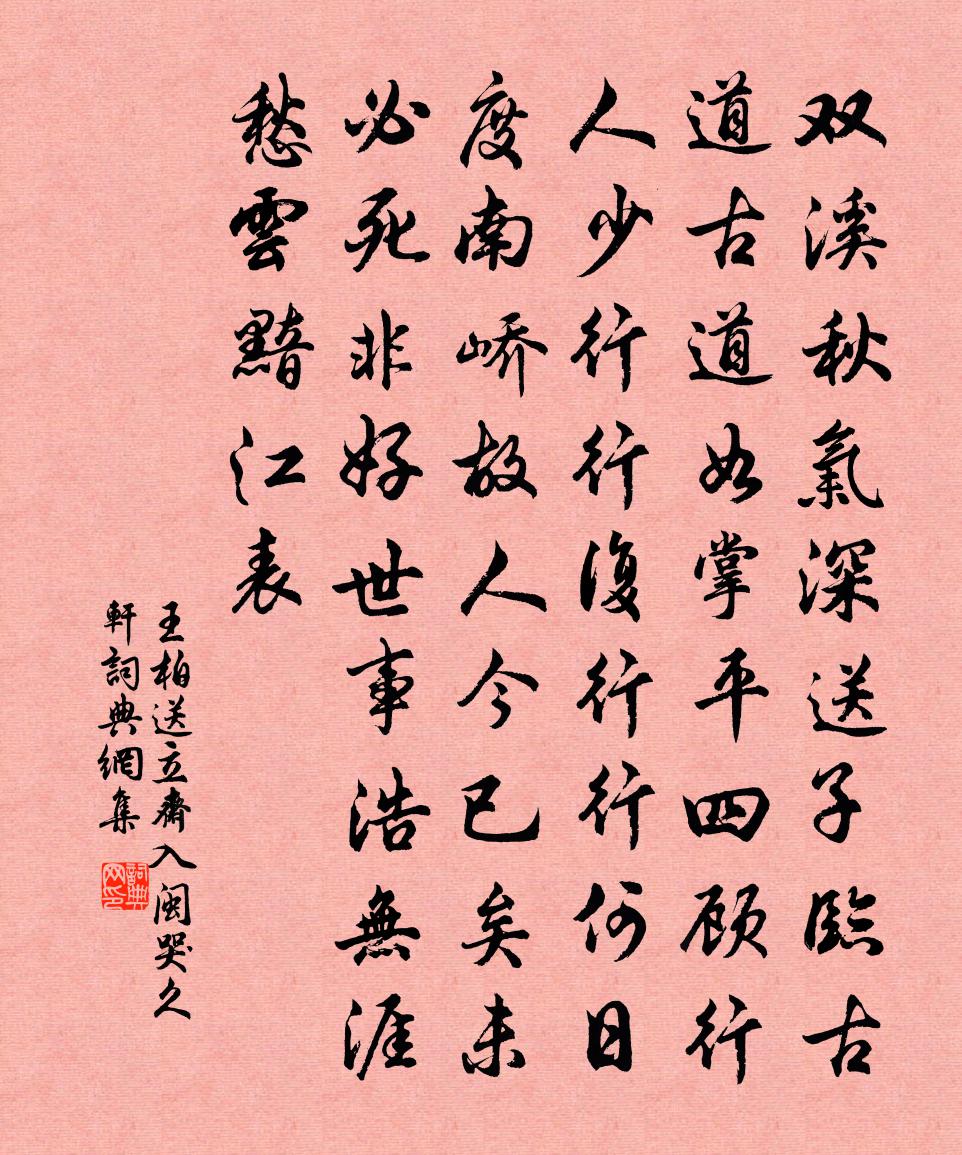 双溪秋氣深送子臨古
道古道如掌平四顾行
人少行行復行行何日
度南嶠故人今已矣未
必死非好世事浩無涯
愁雲黯江表
王柏送立齋入閩哭久
軒詞典網集
詞典网印